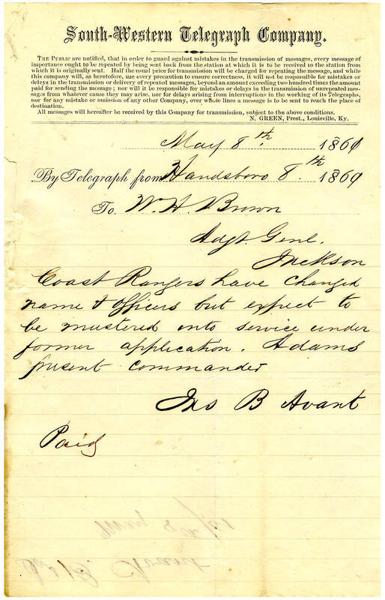 South-Western Telegraph Company.
THE PUBLIC are notified, that in order to guard against mistakes in the transmission of messages, every message of
importance ought to be repeated by being sent back from the station at which it is to be received to the station from
which it is originally sent. Half the usual price for transmission will be charged for repeating the message, and while
this company will, as heretofore, use every precaution to ensure correctness, it will not be responsible for mistakes or
delays in the transmission or delivery of repeated messages, beyond an amount exceeding two hundred times the amount
paid for sending the message; nor will it be responsible for mistakes or delays in the transmission of unrepeated mes-
sages from whatever cause they may arise, nor for delays arising from interruptions in the working of its Telegraphs,
nor for any mistake or omission of any other Company, over whose lines a message is to be sent to reach the place of
destination.
All messages will hereafter be received by this Company for transmission, subject to the above conditions.
N. GREEN, Prest., Louisville, Ky.
May 8th. 1861
By Telegraph from Handsboro 8th. 1860
To W. H. Brown
Adgt Genl.
Jackson
Coast Rangers have changed
name & officers but expect to
be mustered into service under
former application. Adams
present commander
Jno B Avant
Paid